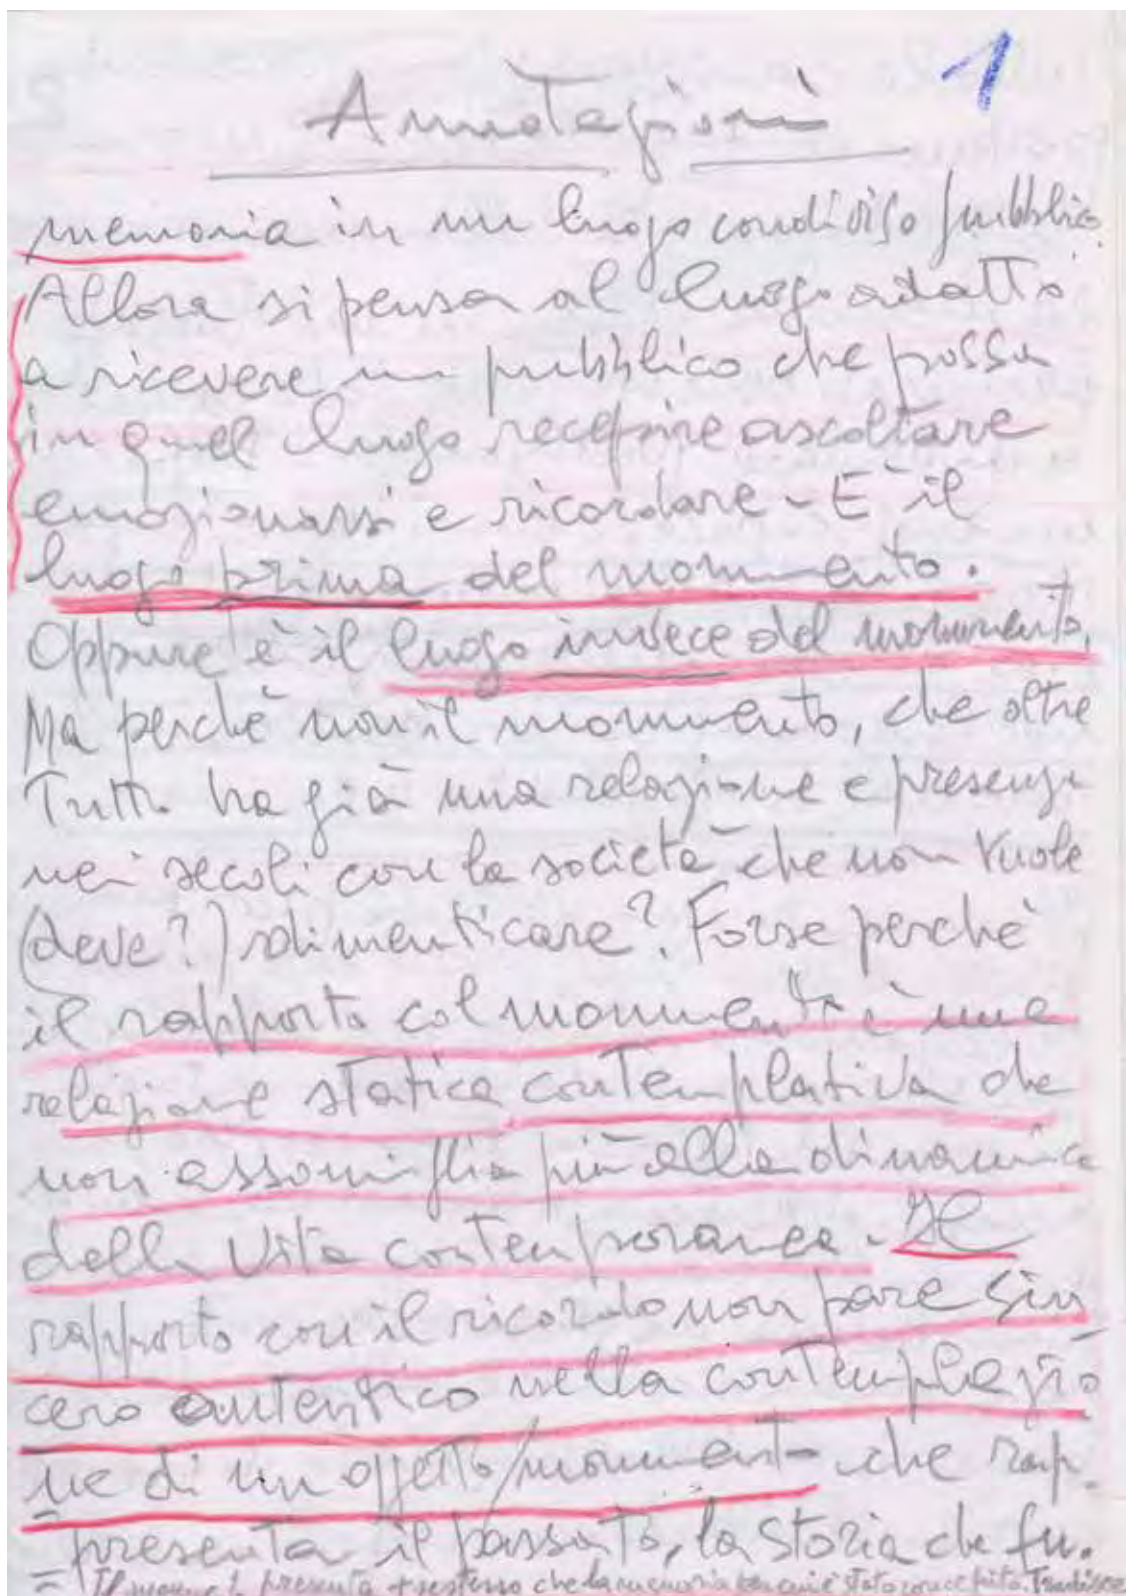 1
Annotazioni
memoria in un luogo condiviso pubblico.
Allora si pensa al luogo adatto
a ricevere un pubblico che possa
in quel luogo recepire ascoltare
emozionarsi e ricordare - E' il
luogo prima del monumento.
Oppure è il luogo invece del monumento.
Ma perchè non il monumento, che oltre
Tutto ha già una relazione e presenza
nei secoli con la società che non vuole
(deve?) dimenticare? Forse perchè
il rapporto col monumento è una
relazione statica contemplativa che
non assomiglia più alla dinamica
della vita contemporanea - Il
rapporto con il ricordo non pare sin
cero autentico nella contemplazio
ne di un oggetto/monumento che rap-
presenta il passato, la storia che fu.
= Il presenta + se stesso che la memoria per cui è stato concepito